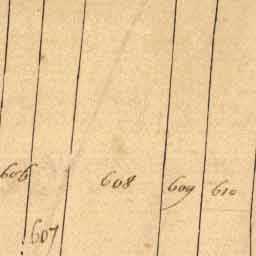 606 608 609 610
607